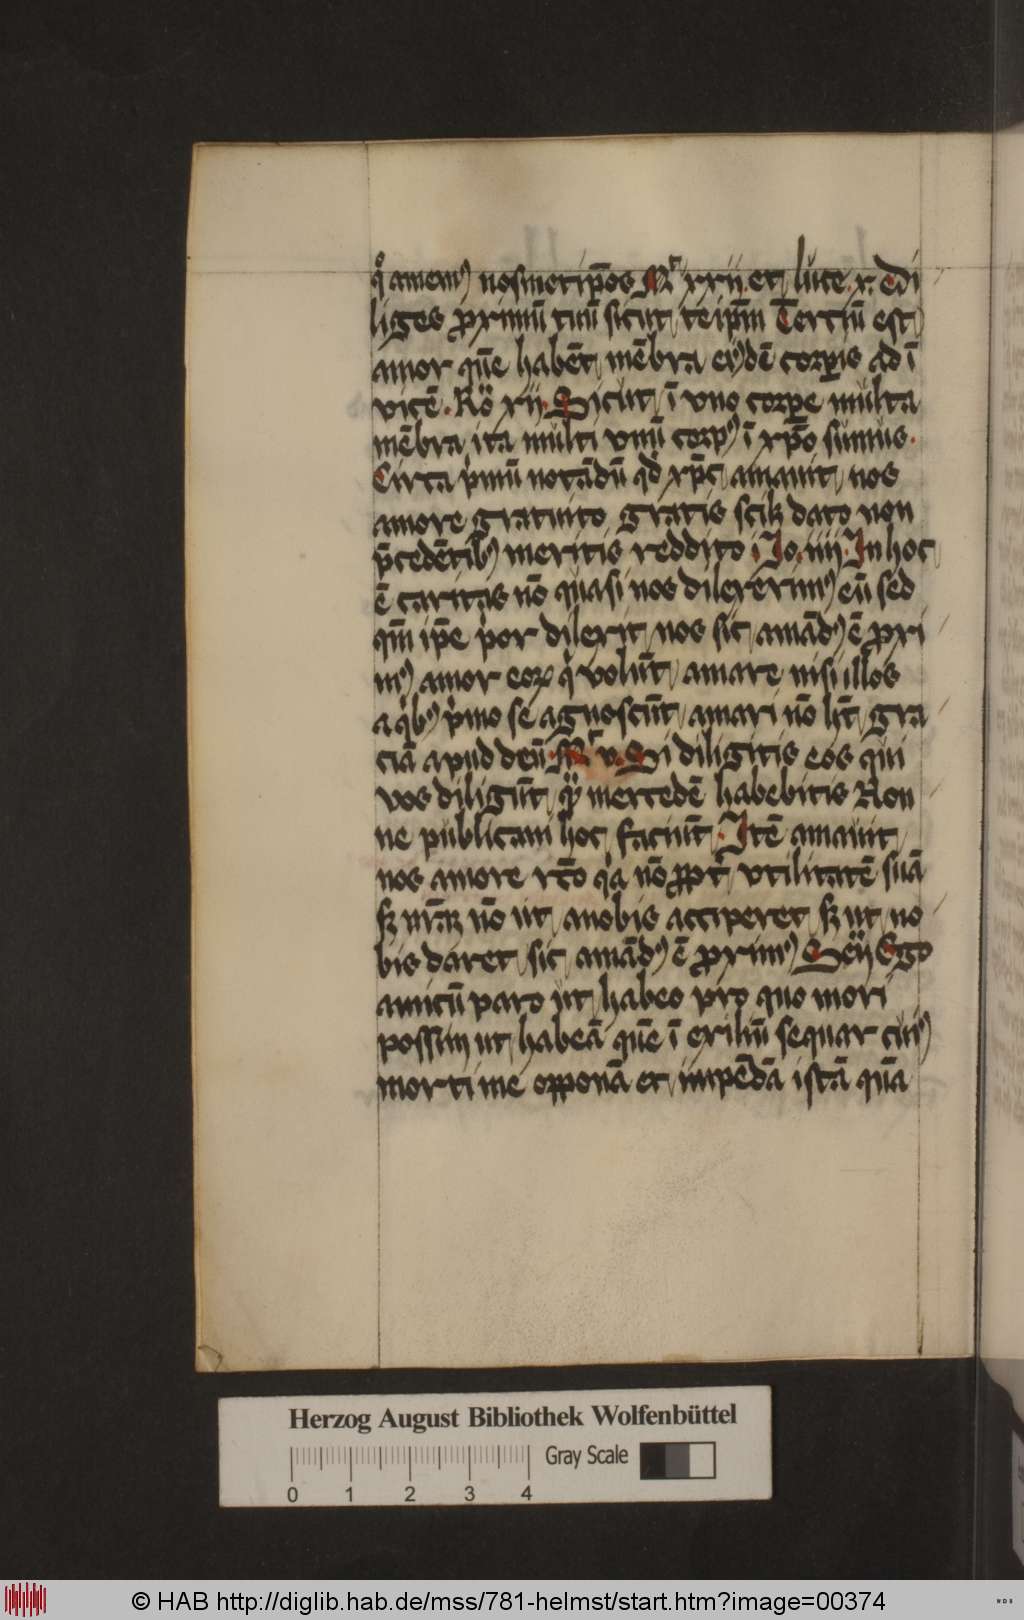 qͦ amemꝰ nosmetip̄os Mͭ xxii. et luce. x. Di
liges ꝓximū tuū sicut teip̄m Terciū est
amor quē habēt mēbra eiꝰdē corꝑis ad ī
vicē. Ro xii. Sicut ī vno corꝑe multa
mēbra ita multi vnū corpꝰ ī xp̄o sumus.
Circa pͥmū notādū qd̄ xp̄c amauit nos
amore gratuito gratis scilꝫ dato non
p̄cedētibꝰ meritis reddito. Jo. iiij. In hoc
ē caritas nō quasi nos dilexerimꝰ eū sed
qm̄ ip̄e pͥor dilexit nos sic amādꝰ ē ꝓxi
mꝰ amor eoꝝ qͥ volūt amare nisi illos
a qͥbꝰ pͥmo se agnoscūt amari nō hn̄t gra
ciā apud deū. Mͭ v. Si diligitis eos qui
vos diligūt qͣm mercedē habebitis Non
ne publicani hoc faciūt. Itē amauit
nos amore rc̄o qͥa nō ꝓpt̄ vtilitatē suā
sꝫ nr̄aꝫ nō ut anobis acciperet sꝫ ut no
bis daret sic amādꝰ ē ꝓximꝰ Ego
amicū paro ut habeo pro quo mori
possim ut habeā quē ī exiliū sequar cuiꝰ
morti me opponā et inpēdā istā quā
Herzog August Bibliothek Wolfenbüttel
Gray Scale
0 1 2 3 4
© HAB http://diglib.hab.de/mss/781-helmst/start.htm?image=00374